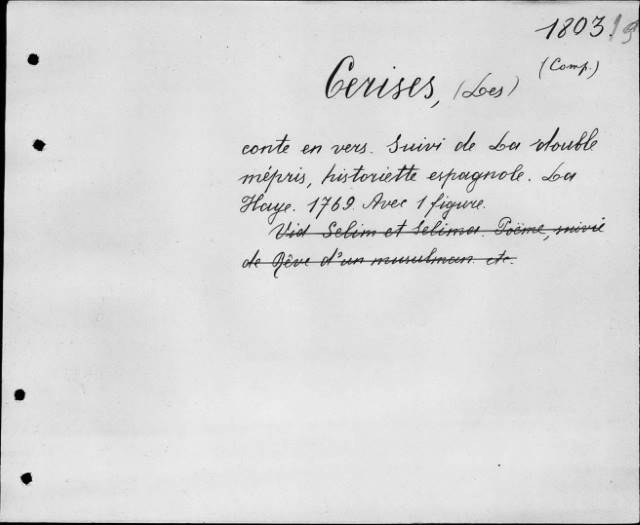 1803.
(Comp.)
Cerises, (Les)
conte en vers. Suivi de La double
mépris, historiette espagnole. La
Haye. 1769. Avec 1 figure.
Vid Selim et Selima. Poëme, suivie
de Rêve d'un musulman etc.